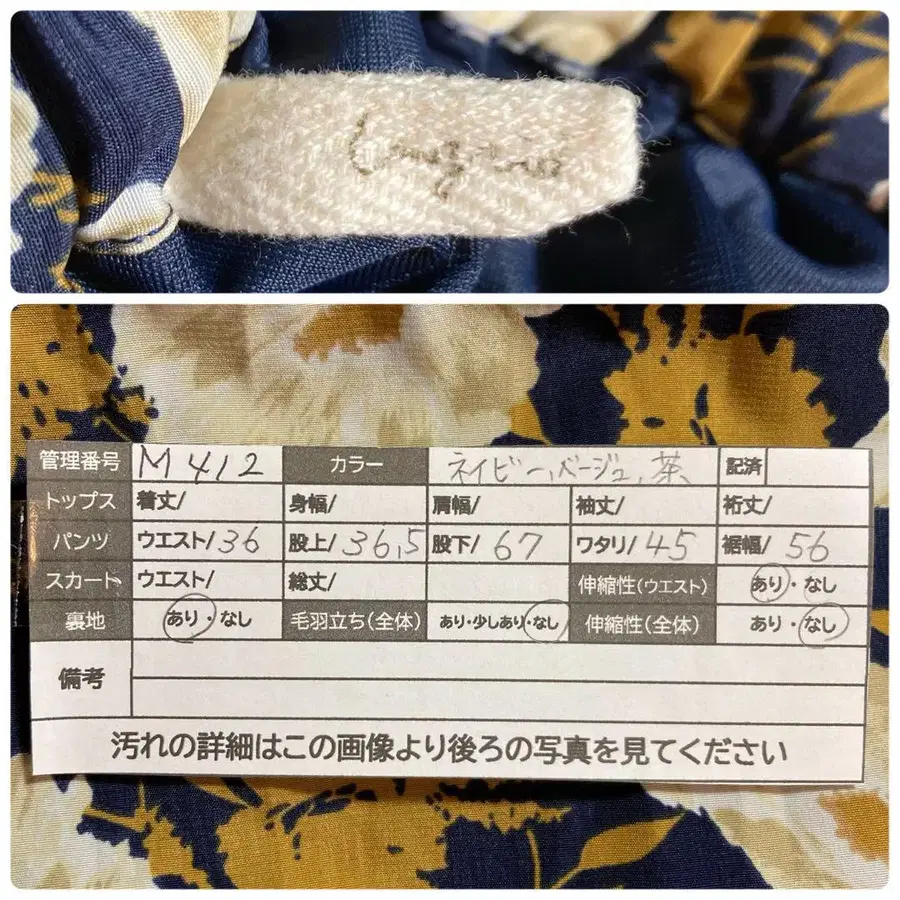 管理番号 M412 カラー ネイビー、ベージュ、茶 記済
トップス 着丈/ 身幅/ 肩幅/ 袖丈/ 裄丈/
パンツ ウエスト/36 股上/36,5 股下/67 ワタリ/45 裾幅/56
スカート ウエスト/ 総丈/ 伸縮性(ウエスト) あり・なし
裏地 あり・なし 毛羽立ち(全体) あり・少しあり・なし 伸縮性(全体) あり・なし
備考
汚れの詳細はこの画像より後ろの写真を見てください